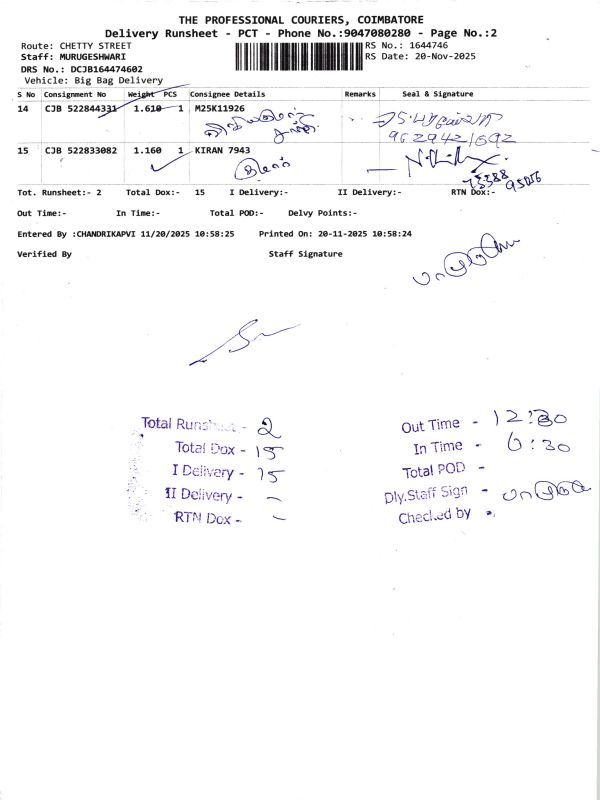 THE PROFESSIONAL COURIERS, COIMBATORE
Delivery Runsheet - PCT - Phone No.:9047080280 - Page No.:2
Route: CHETTY STREET
RS No.: 1644746
Staff: MURUGESHWARI
RS Date: 20-Nov-2025
DRS No.: DCJB164474602
Vehicle: Big Bag Delivery
S No Consignment No Weight PCS Consignee Details Remarks Seal & Signature
14 CJB 522844331 1.610 1 M25K11926
9629421692
15 CJB 522833082 1.160 1 KIRAN 7943
Tot. Runsheet:- 2 Total Dox:- 15 I Delivery:- II Delivery:- RTN Dox:-
Out Time:- In Time:- Total POD:- Delvy Points:-
Entered By :CHANDRIKAPVI 11/20/2025 10:58:25 Printed On: 20-11-2025 10:58:24
Verified By Staff Signature
Total Runsheet - 2
Total Dox - 15
I Delivery - 15
II Delivery - -
RTN Dox - -
Out Time - 12:30
In Time - 6:30
Total POD -
Dly.Staff Sign -
Checked by -